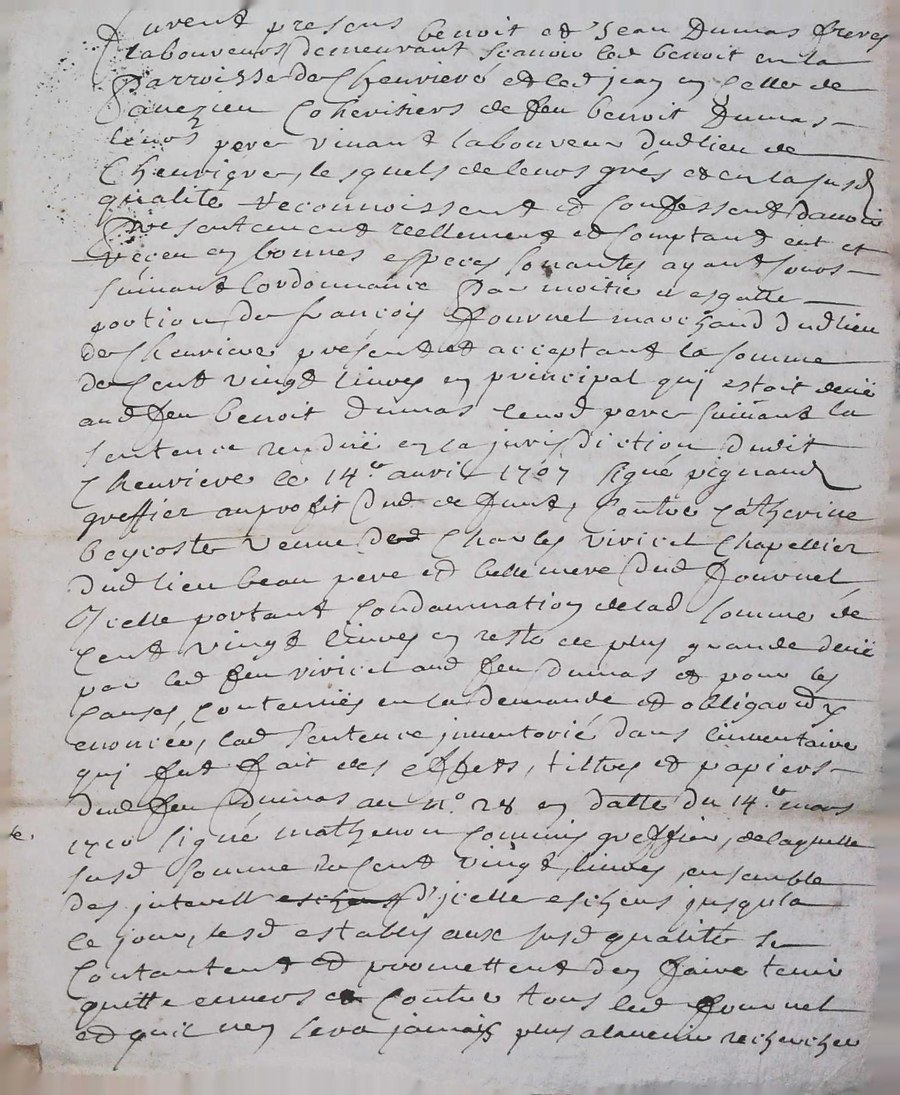 furent presens benoit et Jean Dumas freres
laboureurs demeurant scavoir led benoit en la
Parroisse de Chevrieré et led jean en celle de
Cohevitiers de feu benoit Dumas
leurs pere vivant laboureur dudlieu de
Chevrieres, lesquels de leurs grés et en la susd
qualité reconnoissent et confessent d'avoir
Presentement reellement et comptant eut et
receu en bonnes especes sonantes ayant cours
suivant lordonnance Par moitié et esgalle
portion de françois fournel marchand dudlieu
de Chevrieres present et acceptant la somme
de Cent vingt livres en principal qui estoit deüe
aud feu benoit dumas leurd pere suivant la
sentence rendüe en la jurisdiction dudit
Chevriere le 14er avril 1707 signé pignaud
greffier au profit dud defunt, Contre Catherine
veuve de Charles vivicel Chapellier
dudlieu beau pere et belle mere dud fournel
Icelle portant Condamnation de lad somme de
Cent vingt livres en reste de plus grande deüe
par led feu vivicel aud feu dumas et pour les
Causes, Contenües en la demande et
enoncée, lad sentence jnventorié dans linventaire
qui fut fait des effets, tiltres et papiers
dud feu dumas au n.o 28 en datte du 14.er mars
1710 signé mathenon Commis greffier, de laquelle
susd somme de Cent vingt livres, ensemble
des jnterest d'jcelle escheus jusqu'a
ce jour, lesd establis aux susd qualité se
Contantent et promettent den faire tenir
quitte envers et Contre tous led fournel
et quil n'en sera jamais plus alavenir rechercher